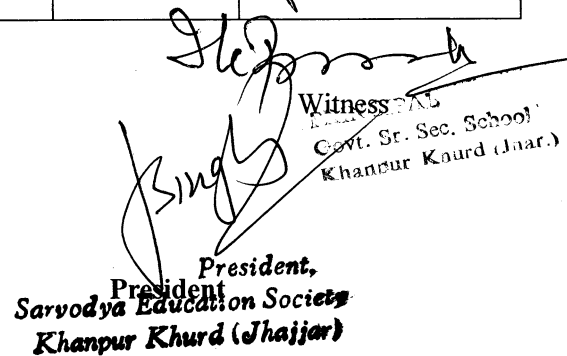 Witness
PAL
Govt. Sr. Sec. School
Khanpur Khurd (Jhar.)
Singh
President,
President
Sarvodya Education Society
Khanpur Khurd (Jhajjar)